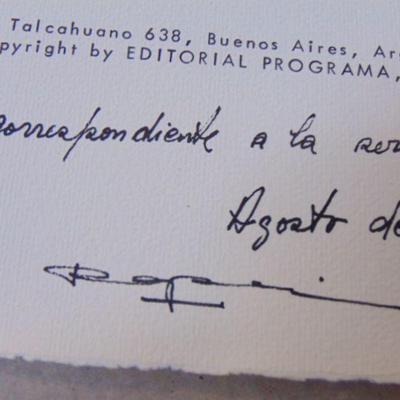 Talcahuano 638, Buenos Aires, Ar
pyright by EDITORIAL PROGRAMA,
correspondiente a la ser
Agosto de